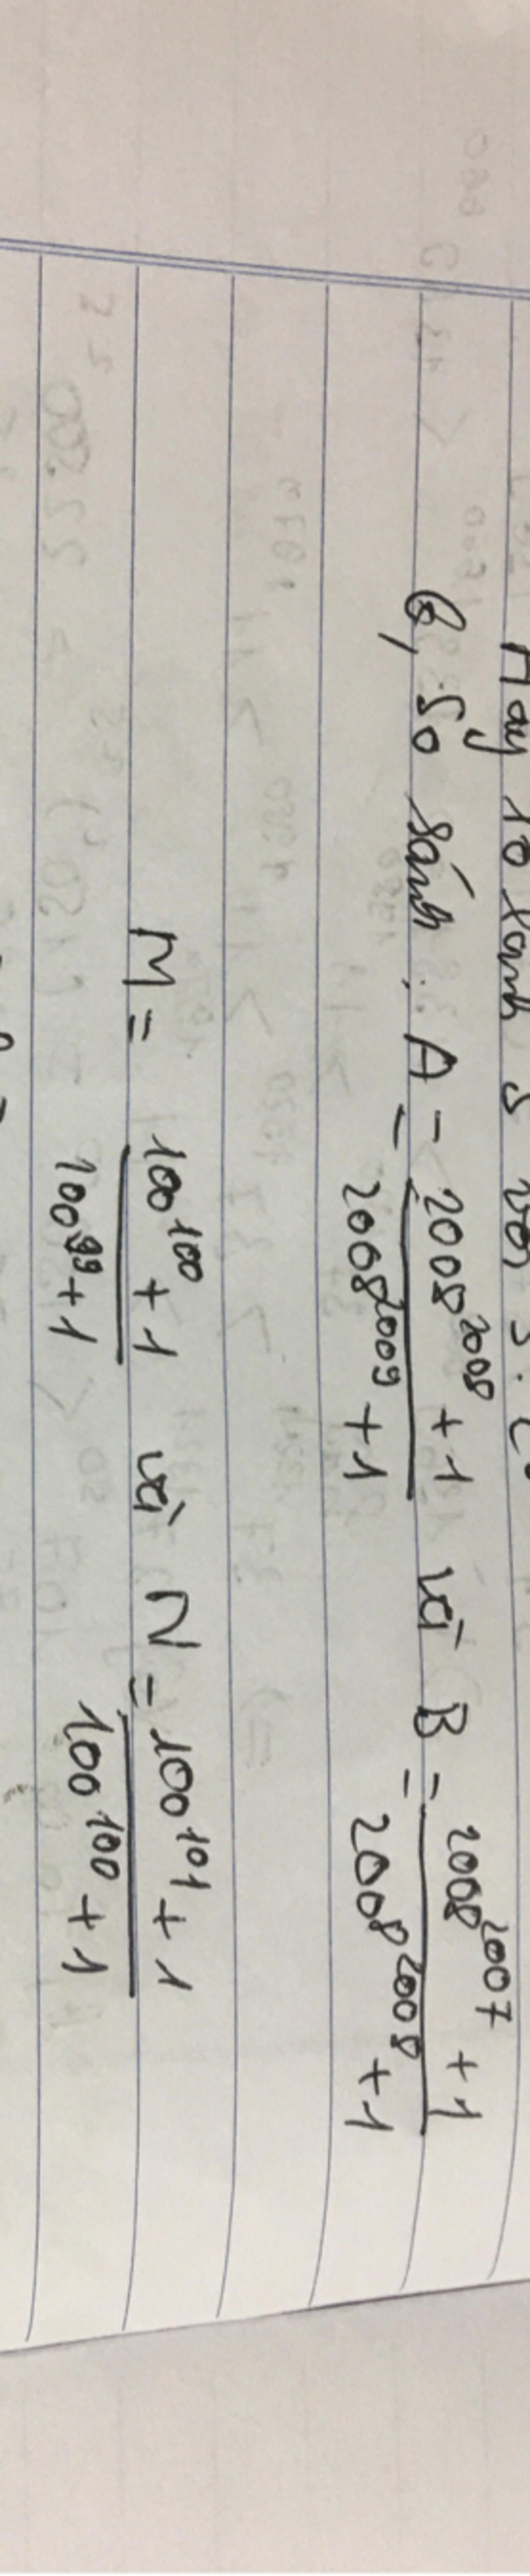 Hãy so sánh S với 5.2
B, So sánh. A = 2008^2008 + 1 / 2008^2009 + 1 và B = 2008^2007 + 1 / 2008^2008 + 1
M = 100^100 + 1 / 100^99 + 1 và N = 100^101 + 1 / 100^100 + 1